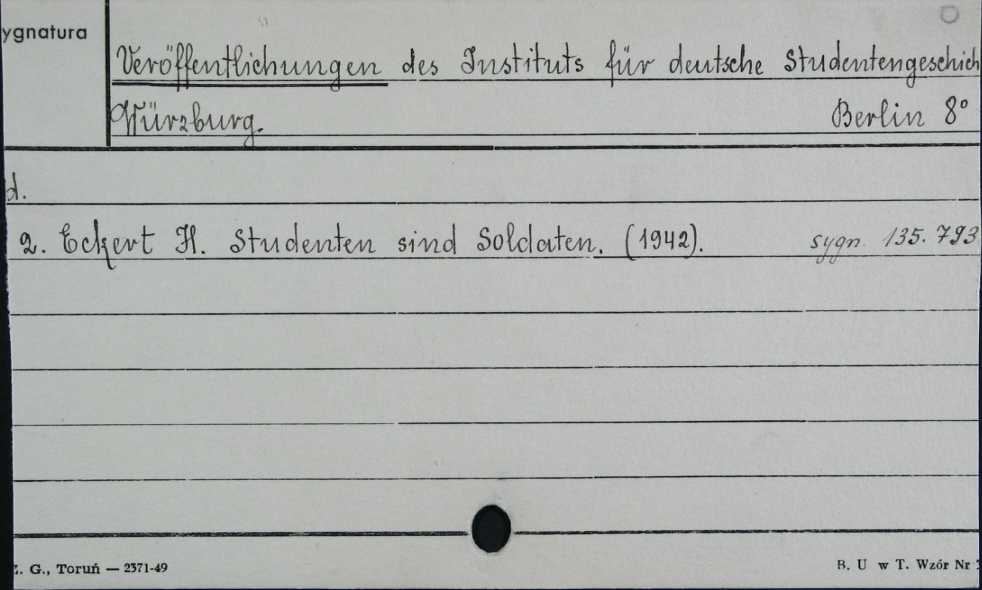 ygnatura
Veröffentlichungen des Instituts für deutsche Studentengeschich
Würzburg. Berlin 8°
d.
2. Eckert H. Studenten sind Soldaten. (1942). sygn. 135.793
. G., Toruń — 2371-49
B. U w T. Wzór Nr